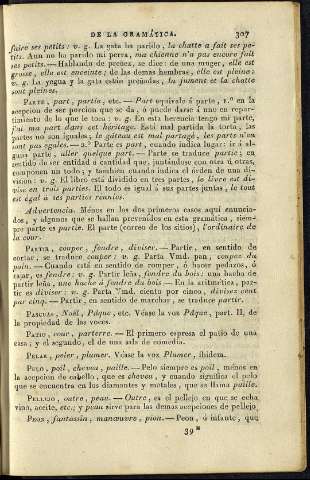 DE LA GRAMÁTICA. 307
faire ses petits : v. g. La gata ha parido, la chatte a fait ses petits. Aun no ha parido mi perra, ma chienne n'a pas encore fait
ses petits. — Hablando de preñez, se dice : de una muger, elle est
grosse, elle est enceinte ; de las demas hembras, elle est pleine :
v. g. La yegua y la gata están preñadas, la jument et la chatte
sont pleines.
PARTE, part, partie, etc. — Part equivale á parte, 1.º en la
acepcion de ser porcion que se da, ó puede darse á uno en repartimiento
de lo que le toca : v. g. En esta herencia tengo mi parte,
j'ai ma part dans cet héritage. Está mal partida la torta, las
partes no son iguales, le gâteau est mal partagé, les parts n'en
sont pas égales. — 2.º Parte es part, cuando indica lugar : ir á alguna
parte, aller quelque part. — Parte se traduce partie ; en
sentido de ser entidad ó cantidad que, juntándose con otra ú otras,
componen un todo ; y tambien cuando indica el órden de una division :
v. g. El libro está dividido en tres partes, le livre est divisé
en trois parties. El todo es igual á sus partes juntas, le tout
est égal à ses parties réunies.
Advertencia. Ménos en los dos primeros casos aquí enunciados,
y algunos que se hallan prevenidos en esta gramática, siempre
parte es partie. El parte (correo de los sitios), l'ordinaire de
la cour.
PARTIR, couper, fendre, diviser. — Partir, en sentido de
cortar, se traduce couper : v. g. Parta Vmd. pan, coupez du
pain. — Cuando está en sentido de romper, ó hacer pedazos, ó
rajar, es fendre : v. g. Partir leña, fendre du bois : una hacha de
partir leña, une hache à fendre du bois — En la aritmética, partir
es diviser : v. g. Parta Vmd. ciento por cinco, divisez cent
par cinq. — Partir, en sentido de marchar, se traduce partir.
PASCUAS, Noël, Pâque, etc. Véase la voz Pâque, part. II, de
la propiedad de las voces.
PATIO, cour, parterre. — El primero espresa el patio de una
casa, y el segundo, el de una sala de comedia.
PELAR, peler, plumer. Véase la voz Plumer, ibidem.
PELO, poil, cheveu, paille. — Pelo siempre es poil, ménos en
la acepcion de cabello, que es cheveu, y cuando significa el pelo
que se encuentra en los diamantes y metales, que se llama paille.
PELLEJO, outre, peau. — Outre, es el pellejo en que se echa
vino, aceite, etc.; y peau sirve para las demas acepciones de pellejo
PEON, fantassin, manœuvre, pion. — Peon, ó infante, que
39 *